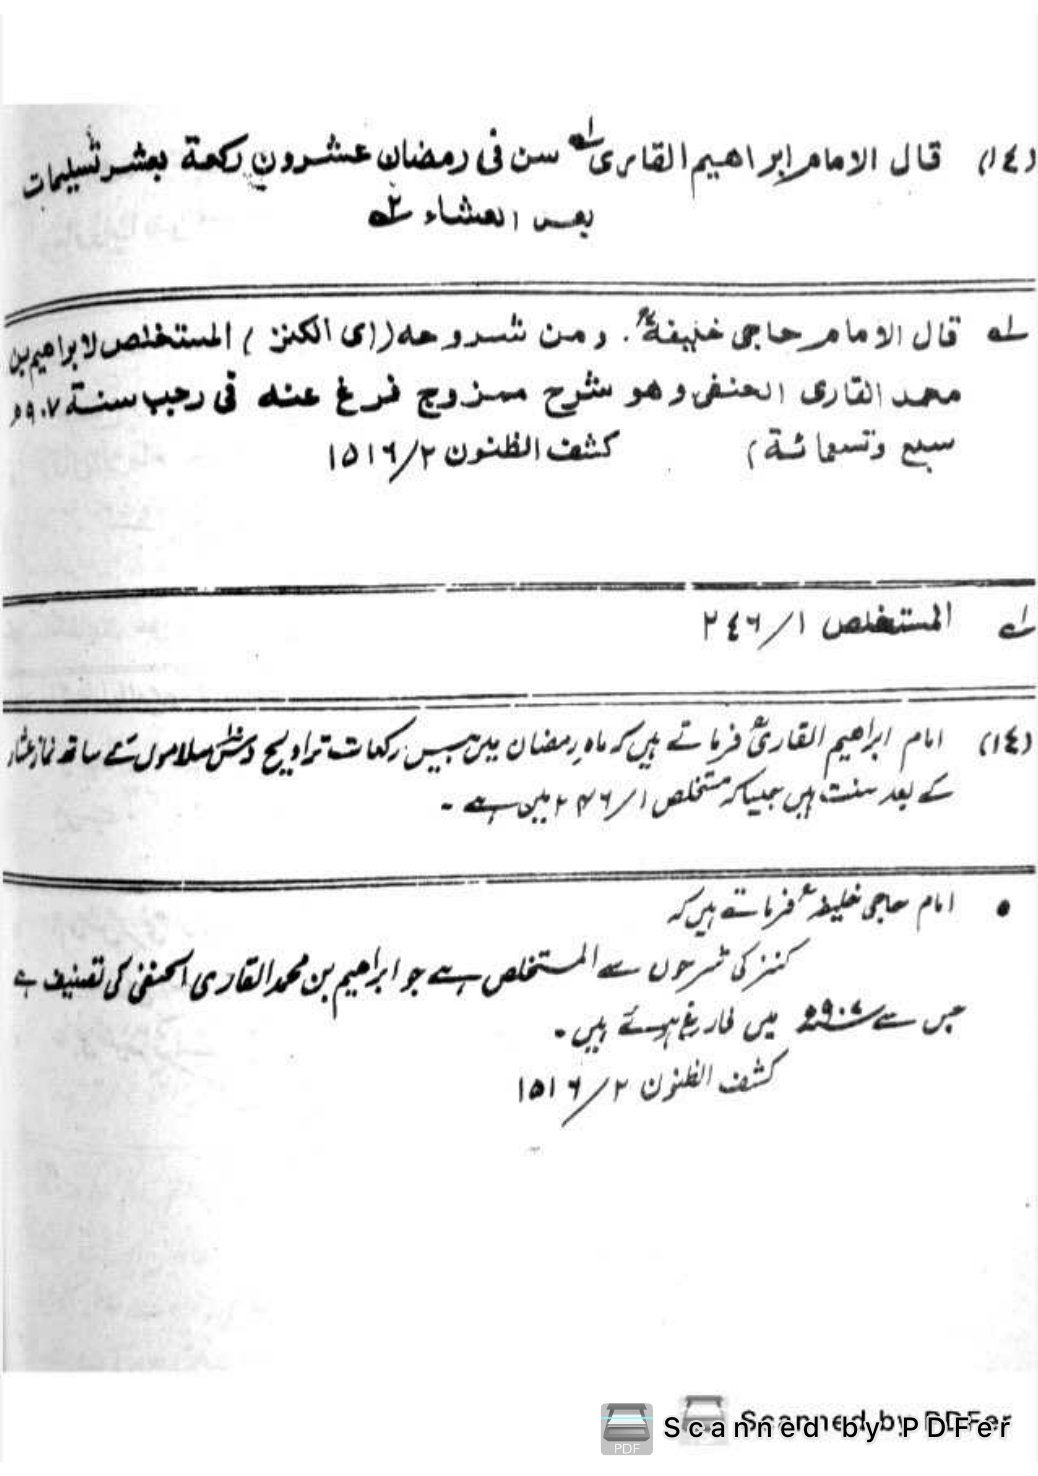 (١٤) قال الامام ابراهيم القارى لـه سن فى رمضان عشرون ركعة بعشر تسليمات
بعد العشاء ٢ـه
لـه قال الامام حاجى خليفةؒ. ومن شروحه (اى الكنز) المستخلص لابراهيم بن
محمد القارى الحنفى وهو شرح ممزوج فرغ عنه فى رجب سنة ٩٠٧ھ
سبع وتسعمائة) كشف الظنون ٢/١٥١٦
المستخلص ١/٢٤٦
(١٤) امام ابراھیم القاریؒ فرماتے ہیں کہ ماہِ رمضان میں بیس رکعات تراویح دس سلاموں کے ساتھ نمازِ عشاء
کے بعد سنت ہیں جیسا کہ مستخلص ١/٢٤٦ میں ہے ۔
• امام حاجی خلیفہؒ فرماتے ہیں کہ
کنز کی شرحوں سے المستخلص ہے جو ابراھیم بن محمد القاری الحنفی کی تصنیف ہے
جس سے ٩٠٧ھ میں فارغ ہوئے ہیں ۔
کشف الظنون ٢/١٥١٦
Scanned by PDFer
PDF
Scanned by PDFer